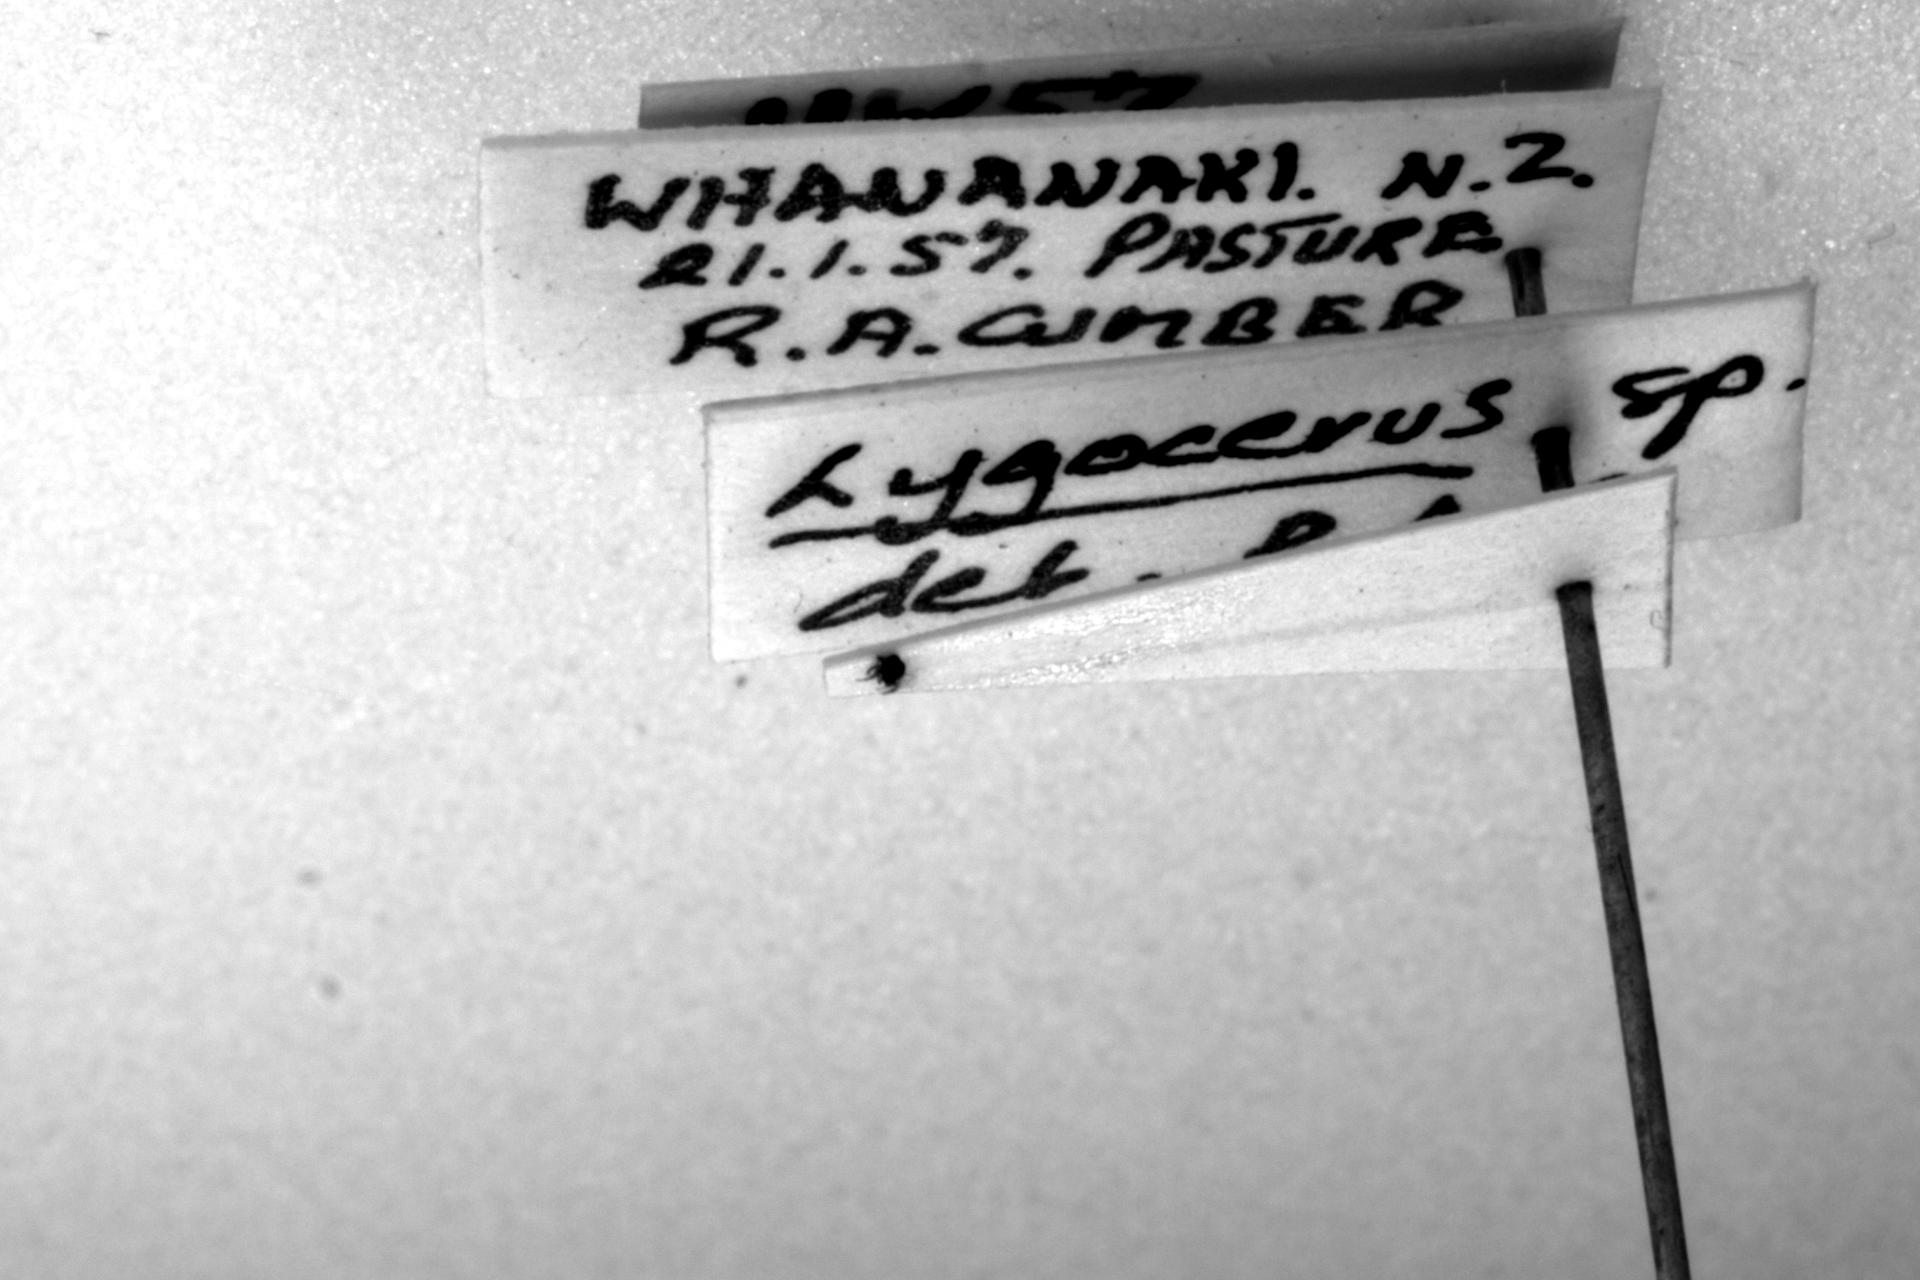 WHANANAKI. N.Z.
21.1.57. PASTURE
R.A. CUMBER
Lygocerus sp.
det.